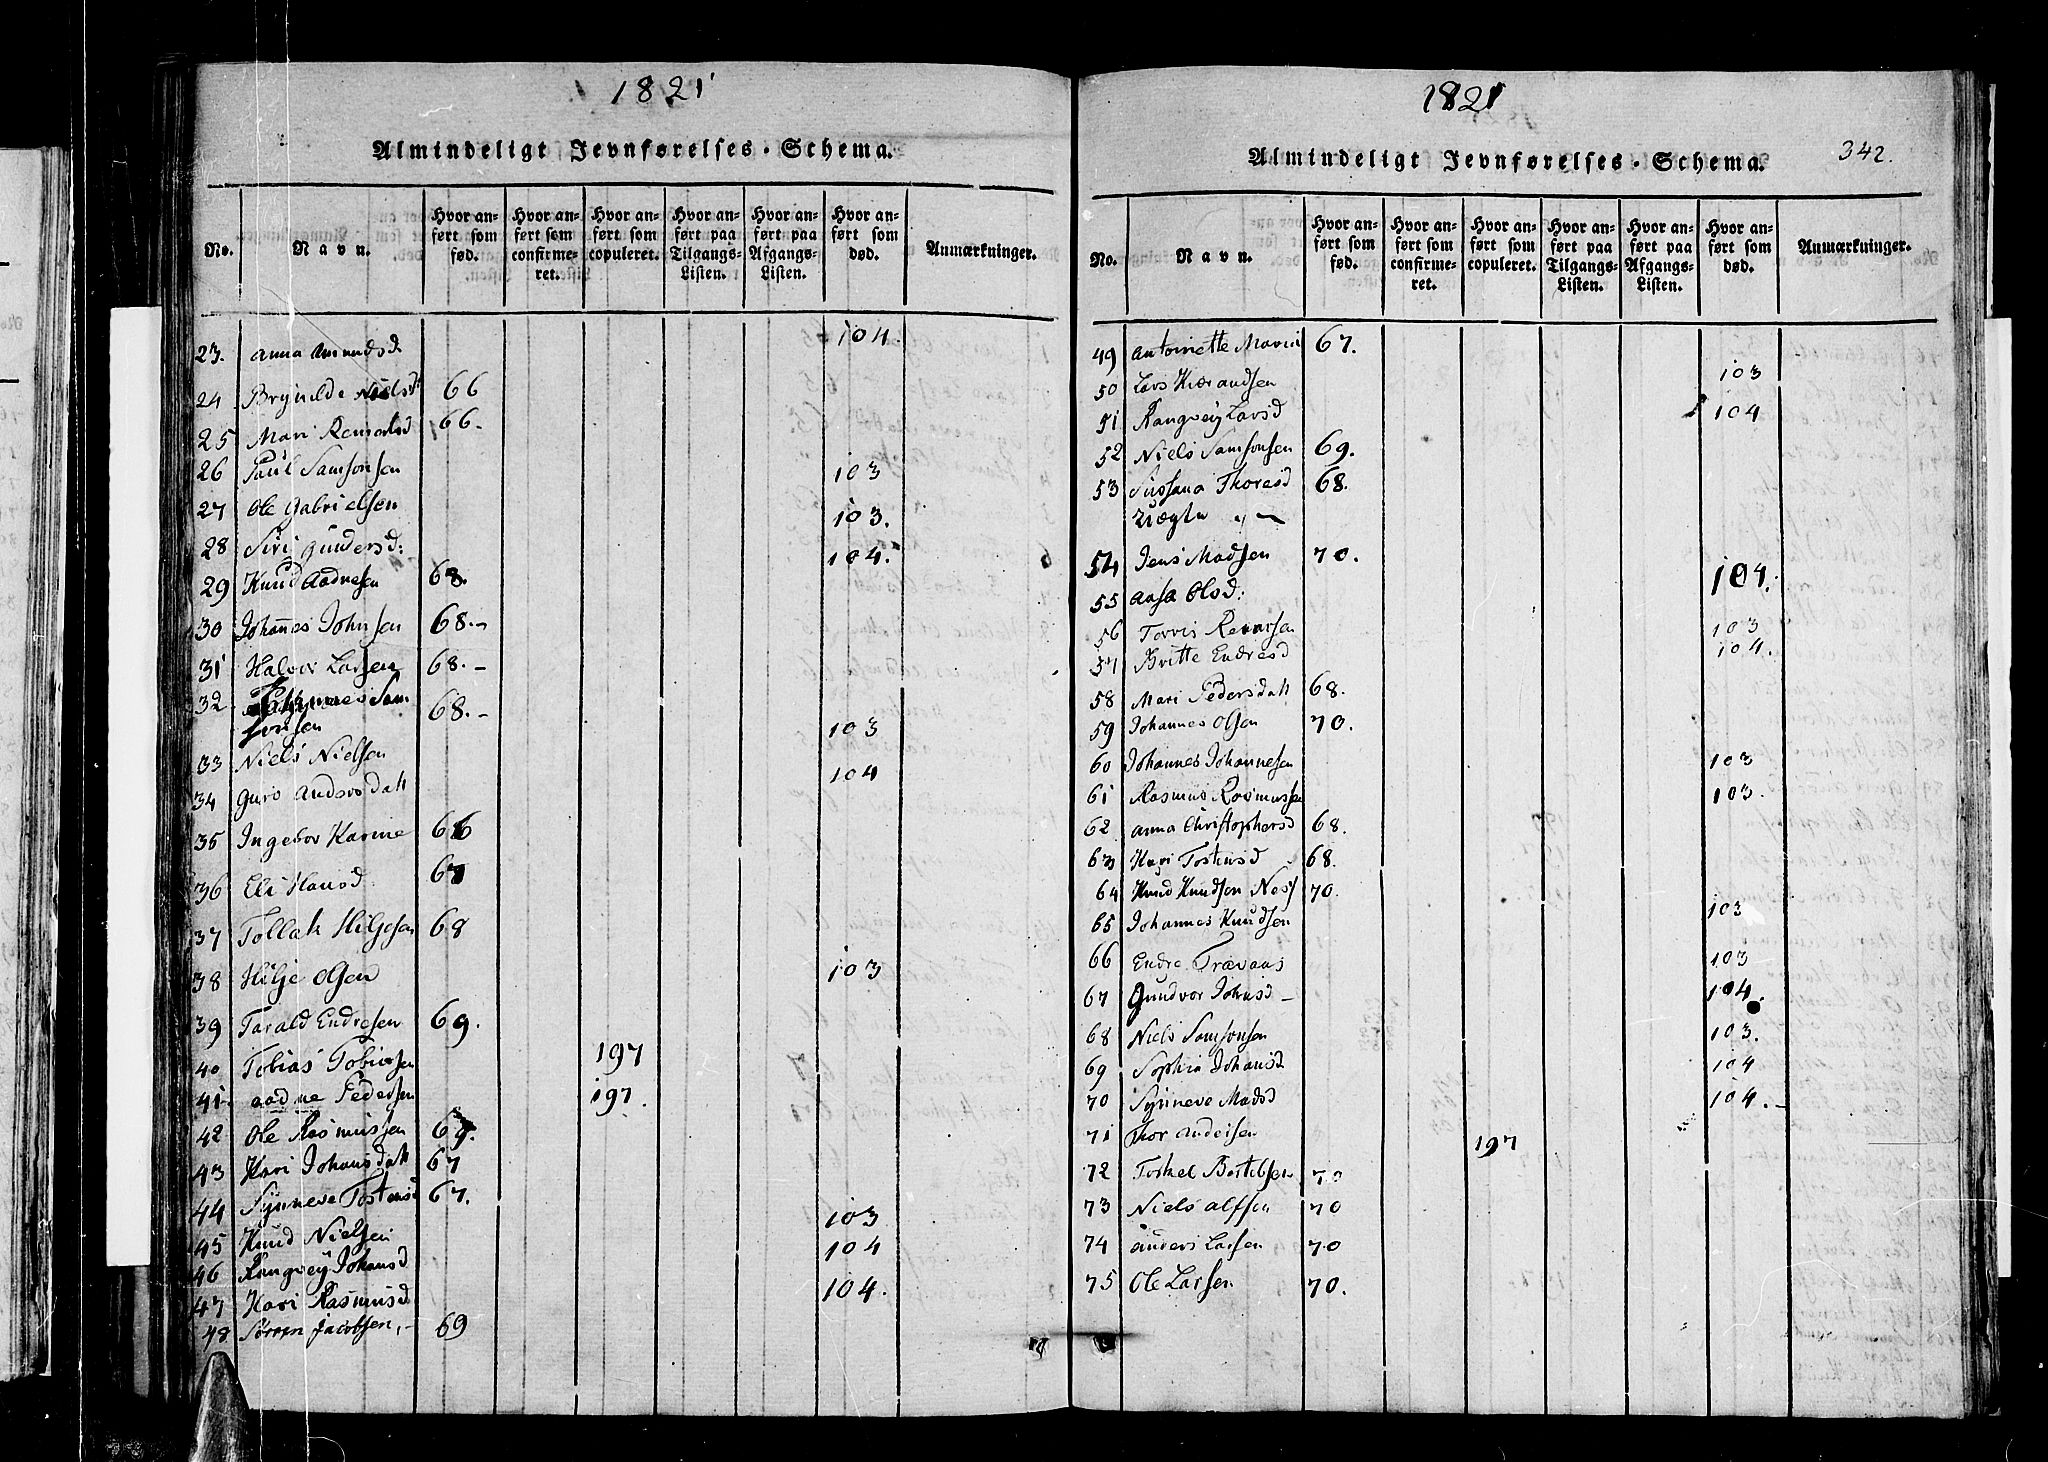 1821
Almindeligt Jevnførelses-Schema.
No.
Navn.
Hvor an-
ført som
fød.
Hvor an-
ført som
confirme-
ret.
Hvor an-
ført som
copuleret.
Hvor an-
ført paa
Tilgangs-
Listen.
Hvor an-
ført paa
Afgangs-
Listen.
Hvor an-
ført som
død.
Anmærkninger.
23. Anna Amundsd 104.
24 Brynilde Nielsd 66
25 Mari 66.
26 Paul Samsonsen 103
27 Ole Gabrielsen 103.
28 Siri Gundersd: 104.
29 Knud Aadnesen 68.
30 Johannes Johnsen 68.-
31 Halvor Larsen 68.-
32 Sam
sonsen 68.-
33 Niels Nielsen 103
34 Guro Andersdatt 104
35 Ingebor Karine 66
36 Eli Hansd 67
37 Tollak Hiljesen 68
38 Hilje Olsen 103
39 Tarald Endresen 69.
40 Tobias Tobiasen 197
41. Aadne Pedersen 197.
42 Ole Rasmussen 69.
43 Kari Johansdatt 67
44 Synneve Tostensd 67.
45 Knud Nielsen 103
46 Rangvey Johansd 104
47 Kari Rasmusd 104.
48 Søren Jacobsen,- 69
1821
342.
Almindeligt Jevnførelses-Schema.
No.
Navn.
Hvor an-
ført som
fød.
Hvor an-
ført som
confirme-
ret.
Hvor an-
ført som
copuleret.
Hvor an-
ført paa
Tilgangs-
Listen.
Hvor an-
ført paa
Afgangs-
Listen.
Hvor an-
ført som
død.
Anmærkninger.
49 Antoinette Marie 67.
50 Lars 103
51 Rangvey Larsd 104
52 Niels Samsonsen 69.
53 Sussana Thoresd 68.
54 Jens Madsen 70.
55 Aasa Olsd: 104.
56 Torris 103
57 Britte Endresd 104.
58 Mari Pedersdatt 68.
59 Johannes Olsen 70.
60 Johannes Johannesen 103
61 Rasmus Rasmussen 103.
62 Anna Christophersd 68.
63 Kari Tostensd 68.
64 Knud Knudsen Ness 70.
65 Johannes Knudsen 103
66 Endre 103
67 Gundvor Johnsd - 104.
68 Niels Samsonsen 103.
69 Sophia Johansd 104
70 Synneve Madsd 104.-
71 Thor Andersen 197
72 Torkel Bertelsen 70
73 Niels Alfsen 70
74 Anders Larsen 70
75 Ole Larsen 70.